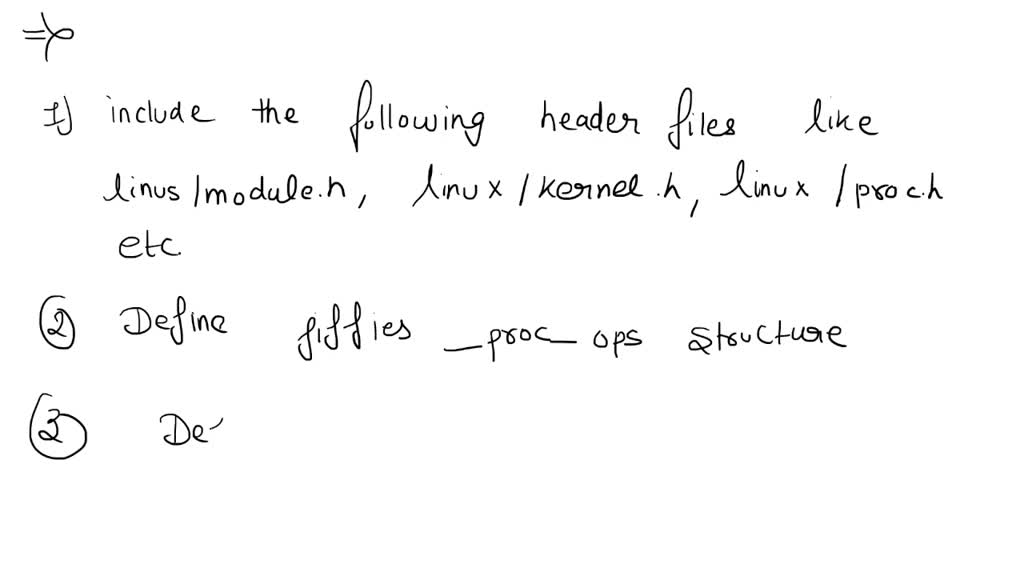 ⇒
1) include the following header files like
linus/module.h, linux/kernel.h, linux/proc.h
etc.
② Define jiffies_proc_ops structure
③ De